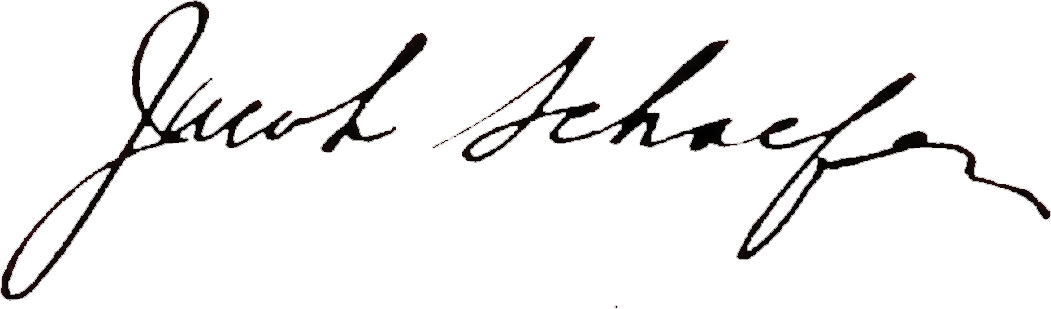 Jacob Schaefer